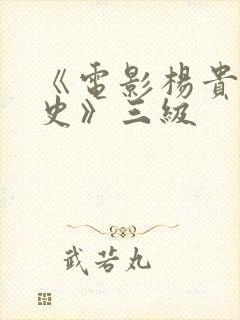 《電影楊貴
史》三級
武若丸